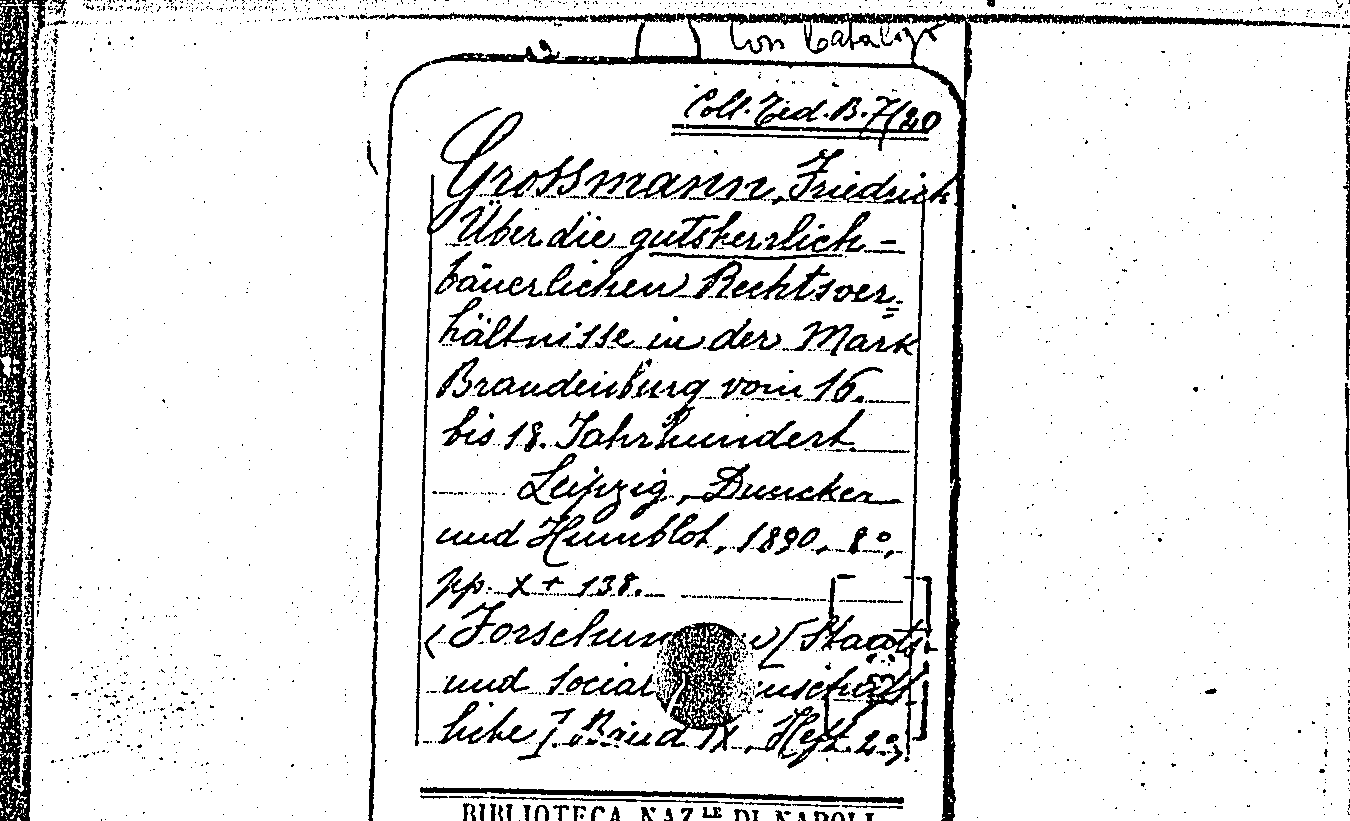 Con Catalogo
Coll. Ted. B. 7/20
Grossmann, Friedrich
Über die gutsherrlich-
bäuerlichen Rechtsver=
hältnisse in der Mark
Brandenburg vom 16.
bis 18. Jahrhundert.
Leipzig, Duncker
und Humblot, 1890. 8°,
pp. X + 138.
(Forschun [Staats-
und social
liche] Band IX, Heft
BIBLIOTECA NAZLE DI NAPOLI